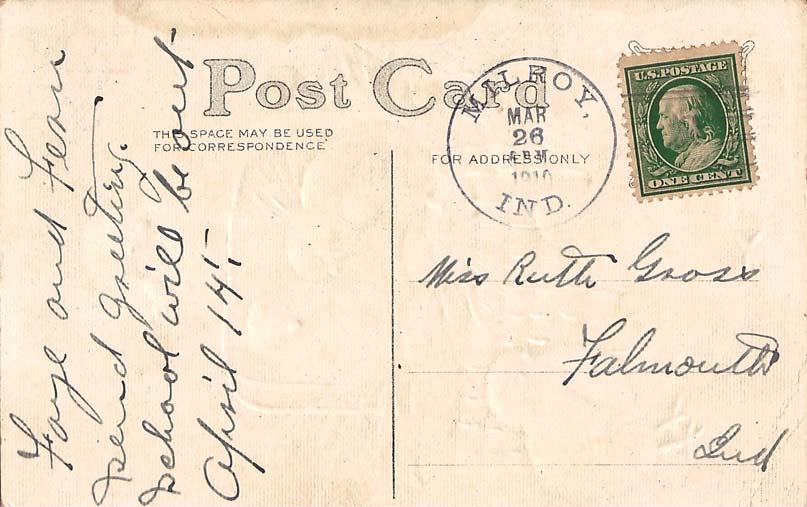 Post Card
THIS SPACE MAY BE USED
FOR CORRESPONDENCE
FOR ADDRESS ONLY
MILROY,
MAR
26
1910
IND.
U.S. POSTAGE
ONE CENT
Faye and Fern
send greeting.
school will be out
April 14.
Miss Ruth Gross
Falmouth
Ind